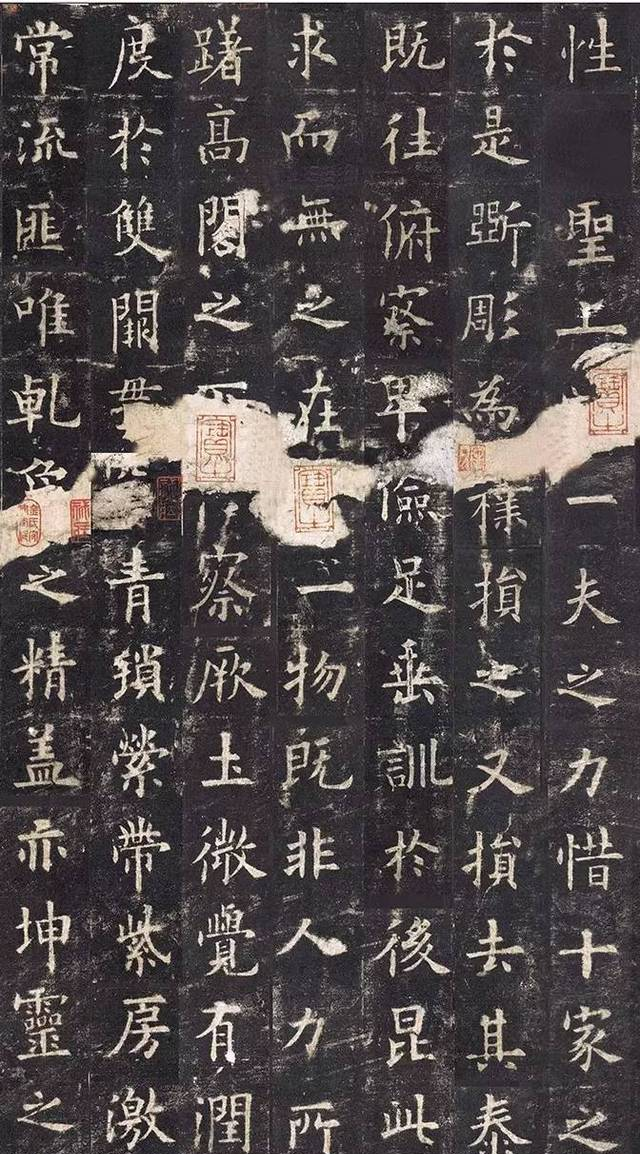 性聖上一夫之力惜十家之
於是斲彫為樸損之又損去其泰
既往俯察卑儉足垂訓於後昆此
求而無之在一物既非人力所
躇高閣之察厥土微覺有潤
度於雙闕貫青瑣縈帶紫房激
常流匪唯乹象之精蓋亦坤靈之